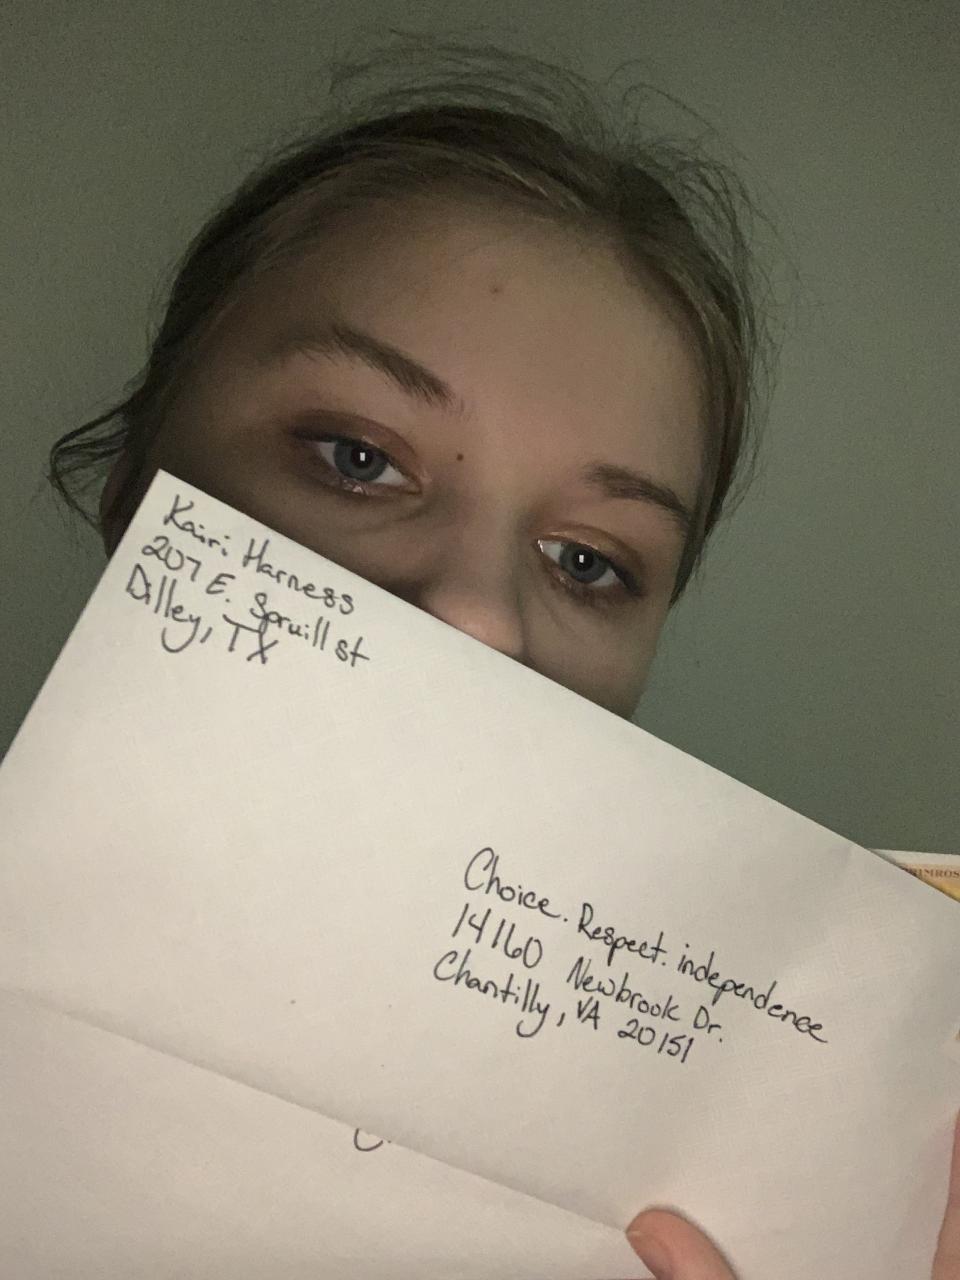 Kairi Harness
207 E. Spruill st
Dilley, TX
Choice. Respect. independence
14160 Newbrook Dr.
Chantilly, VA 20151